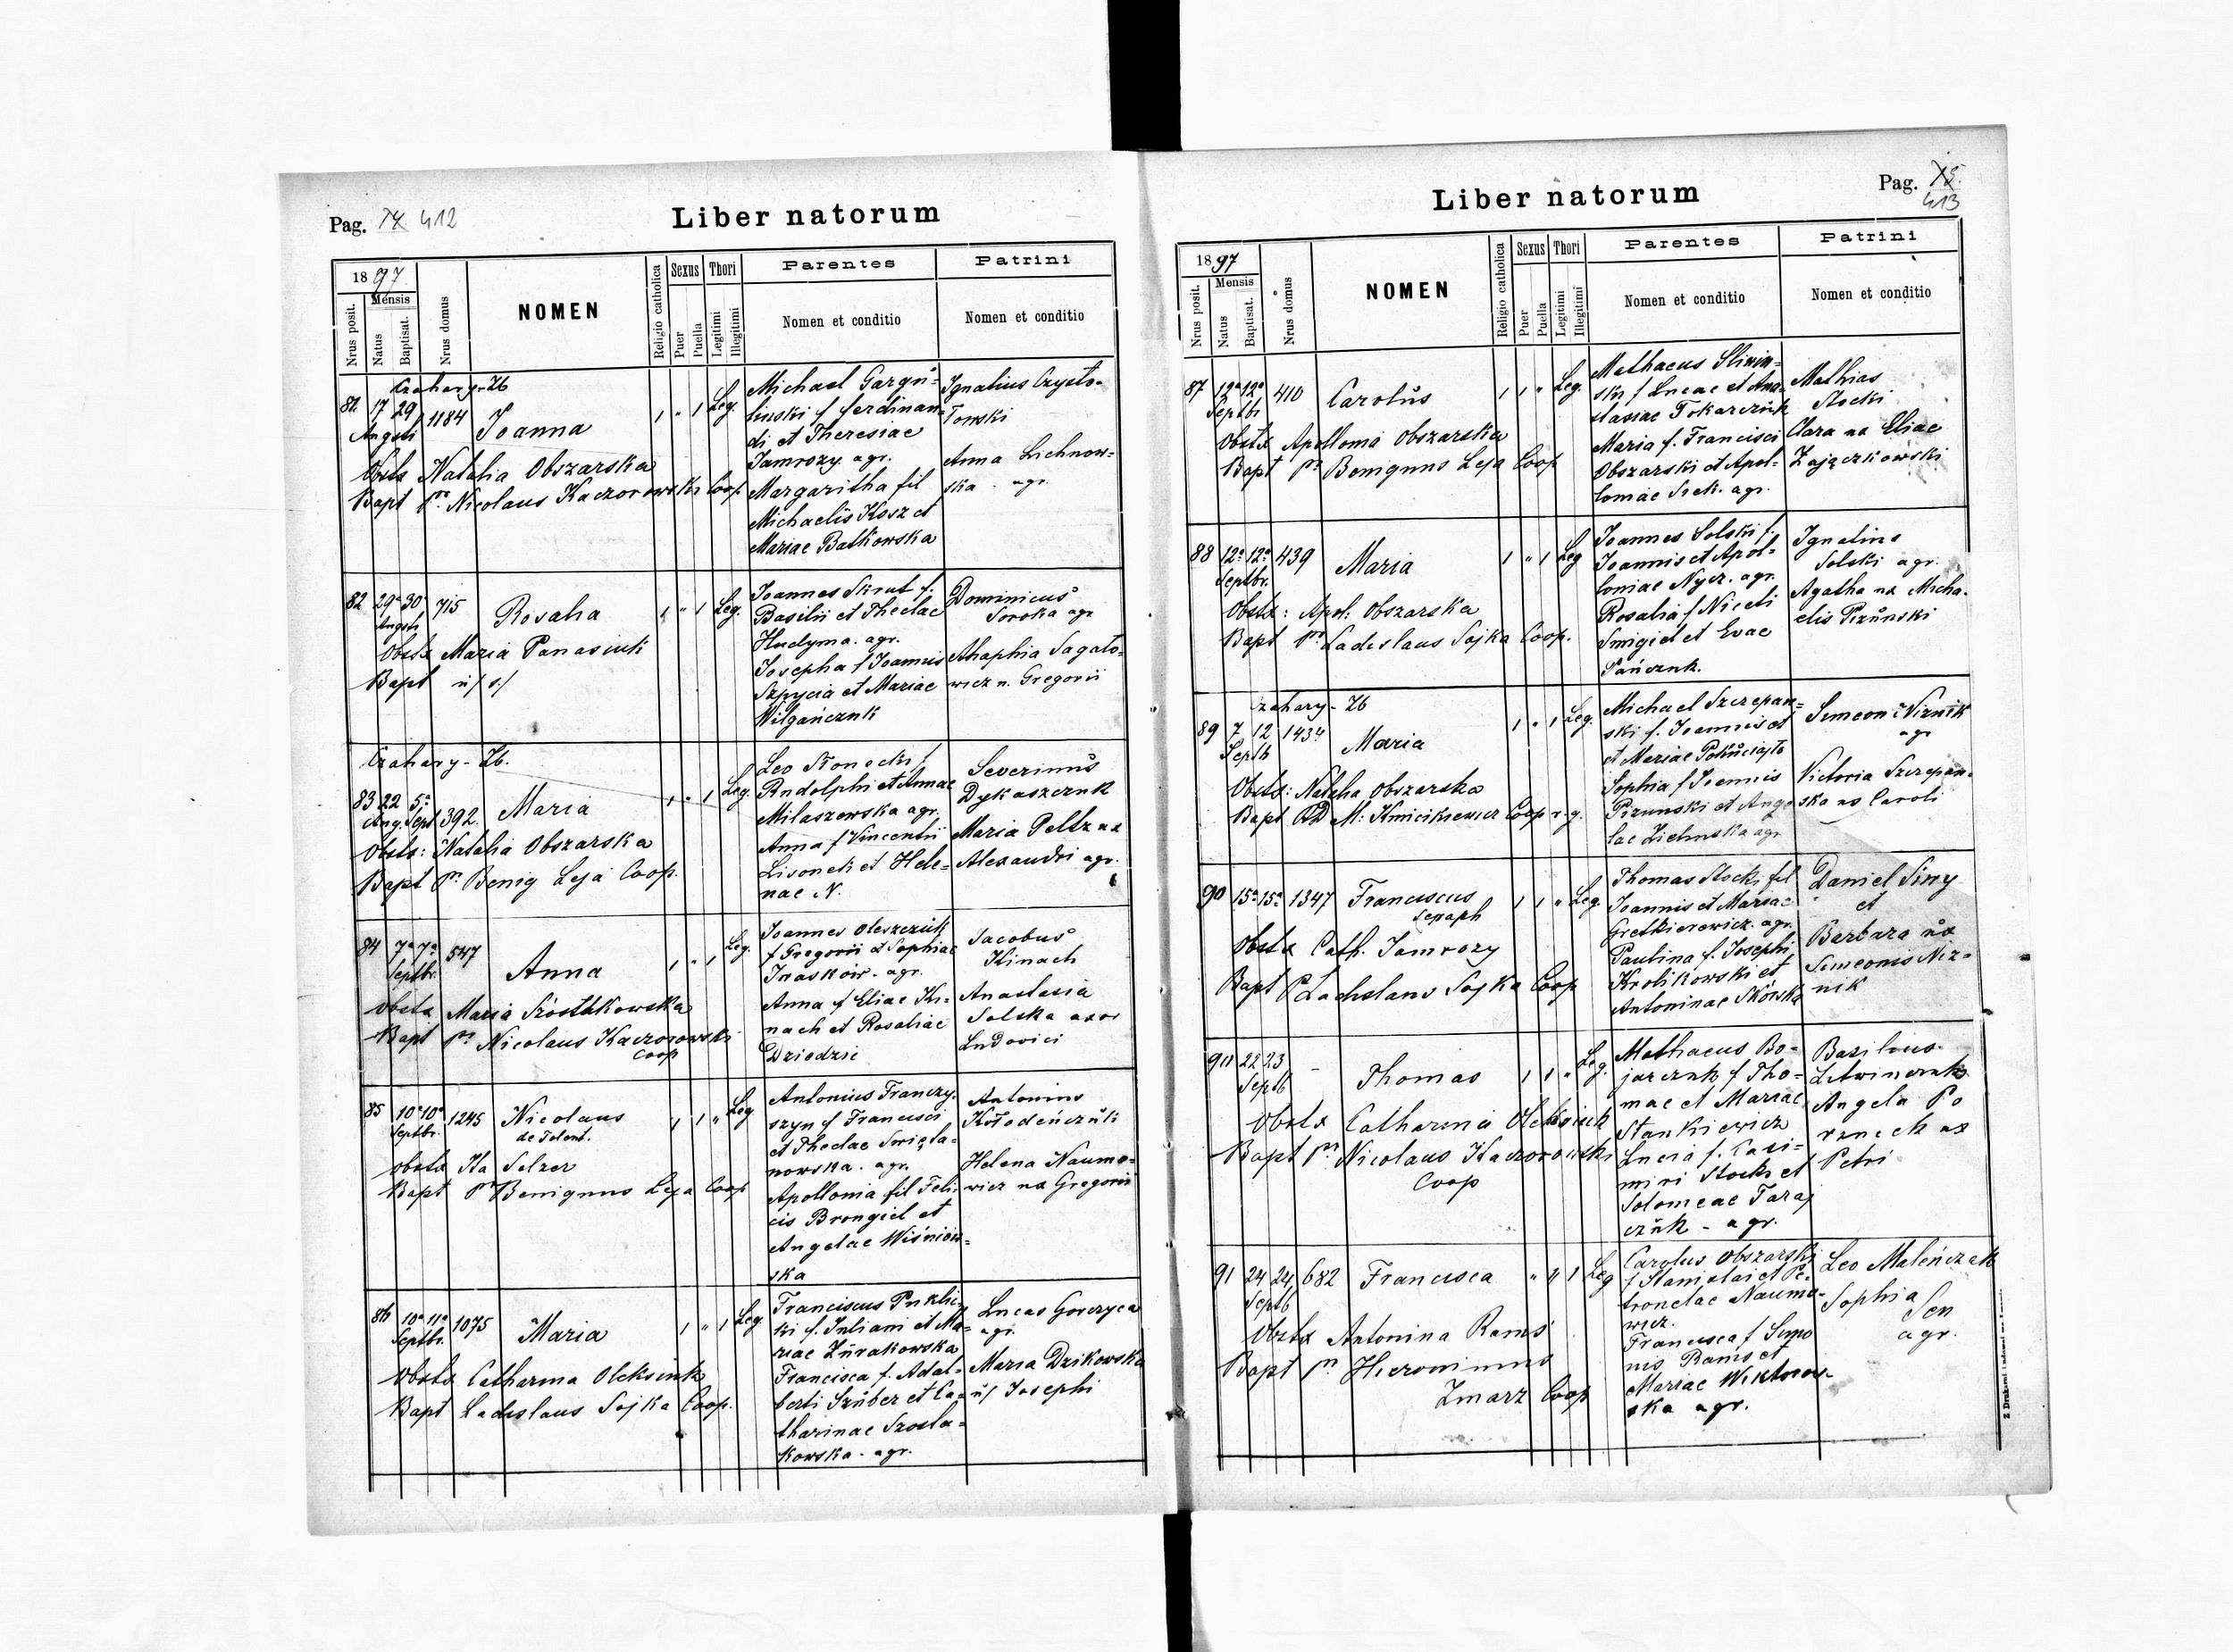 Pag. 74 412
Liber natorum
1897
Nrus posit.
Mensis
Natus
Baptisat.
Nrus domus
NOMEN
Religio catholica
Sexus
Puer
Puella
Thori
Legitimi
Illegitimi
Parentes
Nomen et conditio
Patrini
Nomen et conditio
Czahary-Zb
81. 17 29 Augsti 1184 Joanna 1 " 1 Leg.
Obsta Natalia Obszarska
Bapt Pr. Nicolaus Kaczorowski Coop
Michael Gargu-
linski f ferdinan-
di et Theresiae
Jamrozy agr.
Margaritha fil
Michaelis Kosz et
Mariae Batkowska
Ignatius Czysto-
Tomski
Anna Lichnow-
ska agr.
82 29a 30 Augsti 715 Rosalia 1 " 1 Leg.
Obsta Maria Panasiuk
Bapt u/s/
Joannes Skrut f.
Basilii et Theclae
Hudyma. agr.
Josepha f Joannis
Szpycia et Mariae
Wilgańczuk
Dominicus
Soroka agr
Ahaphia Sagato-
wicz u. Gregorii
Czahary-Zb.
83 22 Aug. 5a Sept 392. Maria 1 " 1 Leg
Obsta: Natalia Obszarska
Bapt Pr. Benig Leja Coop.
Leo Konocki f
Rudolphi et Annae
Milaszewska agr.
Anna f Vincentii
Lisonek et Hele-
nae N.
Severinus
Dykaszczuk
Maria Peltz ux
Alexandri agr.
84 7a 7a Septbr. 547 Anna 1 " 1 Leg.
Obsta Maria Szostakowska
Bapt Pr Nicolaus Kaczorowski
Coop
Joannes Oleszczuk
f Gregorii et Sophiae
Iwaskow - agr.
Anna f Eliae Ki-
nach et Rosaliae
Dziedzic
Jacobus
Kinach
Anastasia
Solska uxor
Ludovici
85 10a 10a Septbr. 1245 Nicolaus 1 1 " Leg
de Tolent.
Obsta Ita Selzer
Bapt Pr Benignus Leja Coop
Antonius Franczy-
szyn f Francisci
et Theclae Swięta-
nowska. agr.
Apollonia fil Feli-
cis Brongiel et
Angelae Wiśniow-
ska
Antonius
Kołodeńczuk
Helena Naumo-
wicz ux Gregorii
86 10a 11a Septbr. 1075 Maria 1 " 1 Leg
Obsta Catharina Oleksiuk
Bapt Ladislaus Sojka Coop.
Franciscus Puklic-
ki f. Juliani et Ma-
riae Żurakowska
Francisca f. Adal-
berti Szuber et Ca-
tharinae Szosta-
kowska - agr.
Lucas Gorczyca
agr.
Maria Dzikowska
u/ Josephi
Liber natorum
Pag. 75
413
1897
Nrus posit.
Mensis
Natus
Baptisat.
Nrus domus
NOMEN
Religio catholica
Sexus
Puer
Puella
Thori
Legitimi
Illegitimi
Parentes
Nomen et conditio
Patrini
Nomen et conditio
87 12a 12a Septbr 410 Carolus 1 1 " Leg.
Obstx Apollonia Obszarska
Bapt Pr Benignus Leja Coop
Mathaeus Sliwin-
ski f Lucae et Ana-
stasiae Tokarczuk
Maria f. Francisci
Obszarski et Apol-
loniae Siek. agr.
Mathias
Stocki
Clara ux Eliae
Zajączkowski
88 12a 12a Septbr. 439 Maria 1 " 1 Leg
Obstx: Apol: Obszarska
Bapt Pr Ladislaus Sojka Coop.
Joannes Solski f.
Joannis et Apol-
loniae Nycz. agr.
Rosalia f Niceti
Smigiel et Evae
Pańczuk.
Ignatius
Solski agr.
Agatha ux Micha-
elis Pizunski
Czahary-Zb
89 7 12 Septb 1434 Maria 1 " 1 Leg.
Obstx: Natalia Obszarska
Bapt RD M: Kmicikiewicz Coop r g.
Michael Szczepan-
ski f. Joannis et
et Mariae Pokuciasto
Sophia f Joannis
Pizunski et Ange
lae Zielinska agr
Simeon Niznik
agr
Victoria Szczepan-
ska ux Caroli
90 15a 15a 1347 Franciscus 1 1 " Leg.
Seraph
Obstx Cath. Jamrozy
Bapt P Ladislaus Sojka Coop
Thomas Stocki fil
Joannis et Mariae
Gretkierewicz. agr.
Paulina f. Josephi
Krolikowski et
Antoninae Skórska
Daniel Siny
et
Barbara ux
Simeonis Niz-
nik
90 22 23 Septb - Thomas 1 1 " Leg.
Obstx Catharina Oleksiuk
Bapt Pr Nicolaus Kaczorowski
Coop
Mathaeus Bo-
jarczuk f Tho-
mae et Mariae
Stankiewicz
Lucia f. Casi-
miri Stocki et
Solomeae Taraj
czuk - agr.
Basilius
Litwinczuk
Angela Po
rznech ux
Petri
91 24 24 Septb 682 Francisca " " 1 Leg
Obstx Antonina Rams
Bapt Pr Hieronimus
Zmarz Coop
Carolus Obszarski
f Stanislai et Pe-
tronelae Naumo-
wicz.
Francisca f Simo
nis Rams et
Mariae Wiktorow-
ska agr.
Leo Maleńczak
Sophia
Sen
agr.